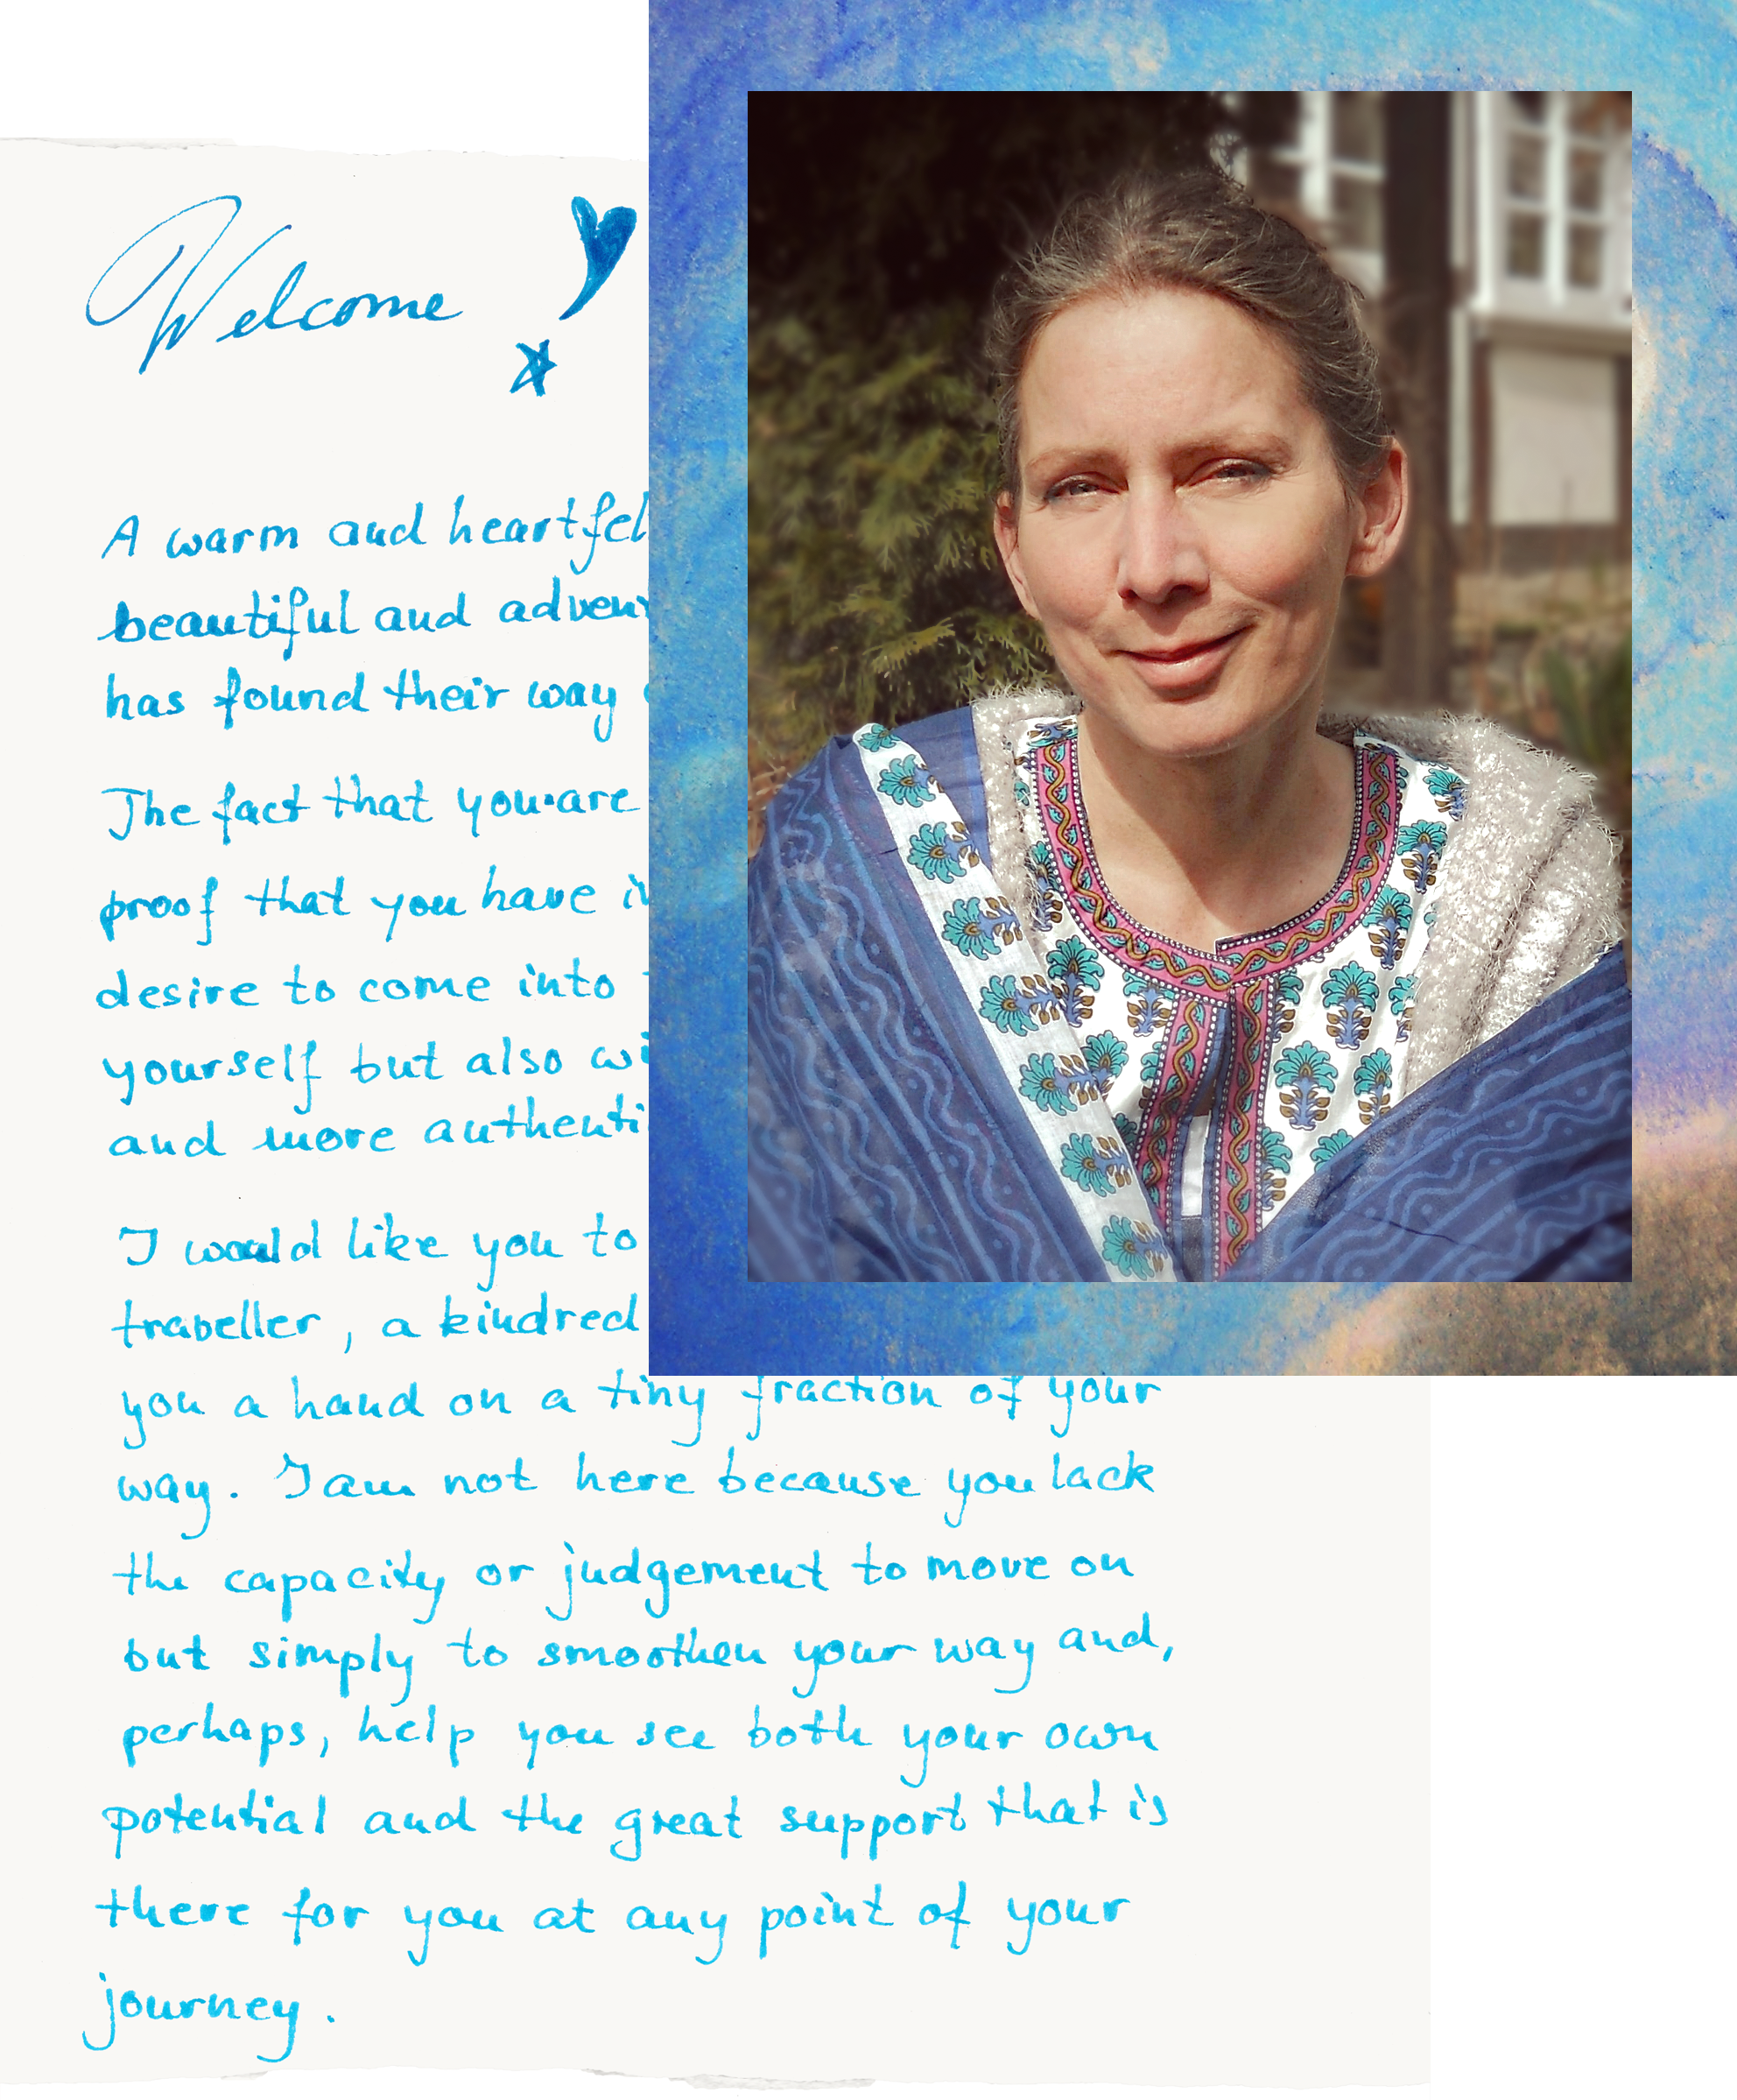 Welcome
A warm and heartfel
beautiful and adven
has found their way
The fact that you are
proof that you have
desire to come into
yourself but also wi
and more authenti
I would like you to
traveller, a kindred
you a hand on a tiny fraction of your
way. I am not here because you lack
the capacity or judgement to move on
but simply to smoothen your way and,
perhaps, help you see both your own
potential and the great support that is
there for you at any point of your
journey.